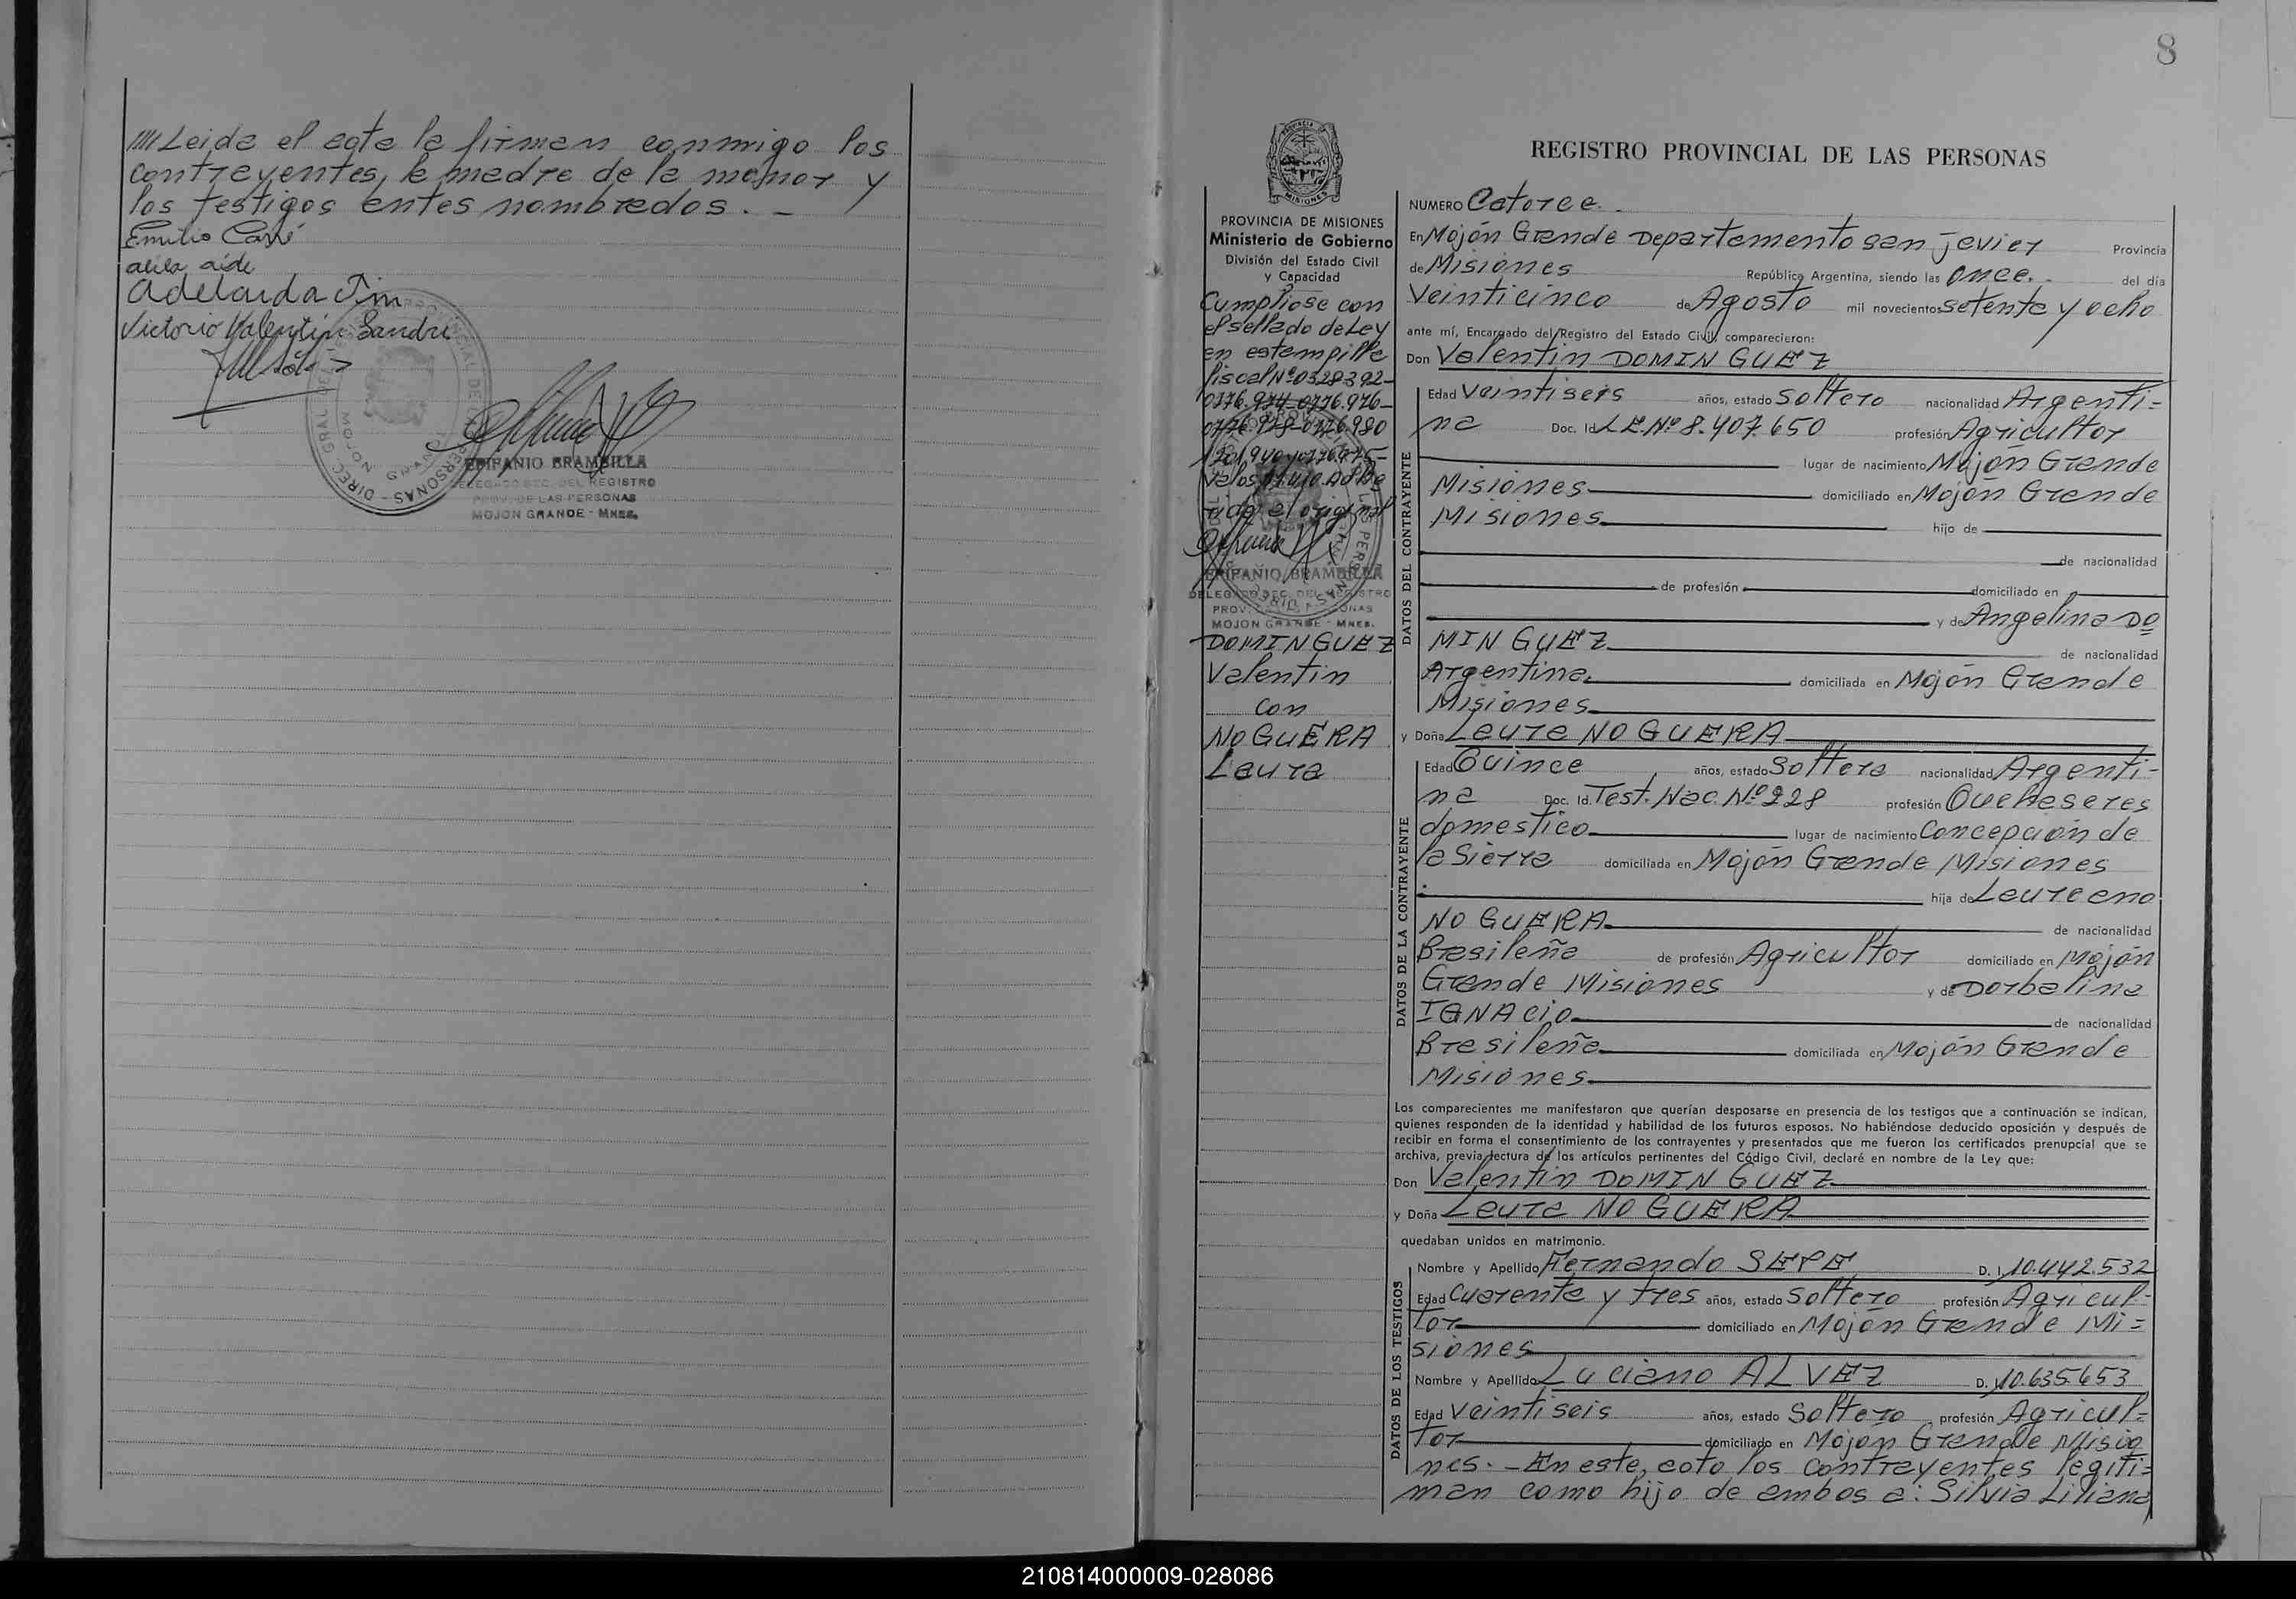 8
//// Leida el acta la firman conmigo los
contrayentes, la madre de la menor y
los testigos antes nombrados. _
Emilio Carré
Adelaida Pim
Victorio Valentin Sandri
EPIFANIO BRAMBILLA
DELEGADO SEC. DEL REGISTRO
PROV. DE LAS PERSONAS
MOJON GRANDE - MNES.
PROVINCIA DE MISIONES
Ministerio de Gobierno
División del Estado Civil
y Capacidad
Cumpliose con
el sellado de Ley
en estampilla
fiscal Nº 0328392-
0776.974-0776.976-
0776.978-0776.980
Adhe
rida el original
EPIFANIO BRAMBILLA
DELEGADO SEC. DEL REGISTRO
PROV. DE LAS PERSONAS
MOJON GRANDE - MNES.
DOMINGUEZ
Valentin
con
NOGUERA
Laura
REGISTRO PROVINCIAL DE LAS PERSONAS
NUMERO Catorce.
En Mojón Grande Departamento san javier Provincia
de Misiones República Argentina, siendo las once. del día
Veinticinco de Agosto mil novecientos setenta y ocho
ante mí, Encargado del Registro del Estado Civil, comparecieron:
Don Valentin DOMINGUEZ
DATOS DEL CONTRAYENTE
Edad Veintiseis años, estado soltero nacionalidad Argenti=
na Doc. Id. L.E. Nº 8.407.650 profesión Agricultor
lugar de nacimiento Mojón Grande
Misiones domiciliado en Mojón Grande
Misiones hijo de
de nacionalidad
de profesión domiciliado en
y de Angelina DO
MINGUEZ de nacionalidad
Argentina domiciliada en Mojón Grande
Misiones
y Doña Laura NOGUERA
DATOS DE LA CONTRAYENTE
Edad Quince años, estado soltera nacionalidad Argenti-
na Doc. Id. Test. Nac. Nº 228 profesión Quehaseres
domestico lugar de nacimiento Concepción de
la Sierra domiciliada en Mojón Grande Misiones
hija de Laureano
NOGUERA de nacionalidad
Brasileña de profesión Agricultor domiciliado en Mojón
Grande Misiones y de Dorbalina
IGNACIO de nacionalidad
Brasileña domiciliada en Mojón Grande
Misiones
Los comparecientes me manifestaron que querían desposarse en presencia de los testigos que a continuación se indican,
quienes responden de la identidad y habilidad de los futuros esposos. No habiéndose deducido oposición y después de
recibir en forma el consentimiento de los contrayentes y presentados que me fueron los certificados prenupcial que se
archiva, previa lectura de los artículos pertinentes del Código Civil, declaré en nombre de la Ley que:
Don Valentin DOMINGUEZ
y Doña Laura NOGUERA
quedaban unidos en matrimonio.
DATOS DE LOS TESTIGOS
Nombre y Apellido Hernando SEPE D. I. 10.442.532
Edad Cuarenta y tres años, estado soltero profesión Agricul-
tor domiciliado en Mojón Grande Mi=
siones
Nombre y Apellido Luciano ALVEZ D. I. 10.635.653
Edad Veintiseis años, estado soltero profesión Agricul=
tor domiciliado en Mojón Grande Misio
nes. - En este acto los contrayentes legiti=
man como hijo de ambos a: Silvia Liliana
210814000009-028086